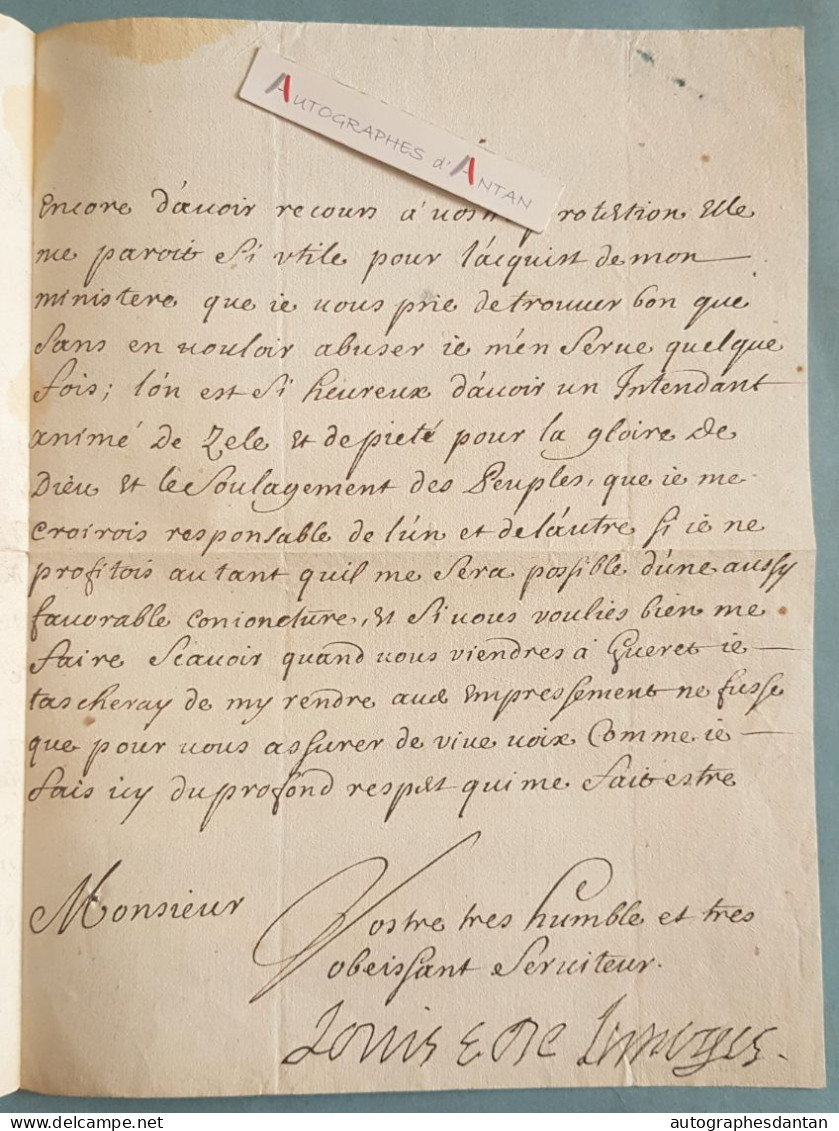 AUTOGRAPHES d'ANTAN
Encore d'auoir recours a vostre protection Elle
me paroit si vtile pour l'acquist de mon
ministere que ie vous prie de trouuer bon que
sans en vouloir abuser ie m'en serue quelque
fois; l'on est si heureux d'auoir un Intendant
animé de zele et de pieté pour la gloire de
Dieu et le soulagement des Peuples, que ie me
croirois responsable de l'un et de l'autre si ie ne
profitois autant quil me sera possible d'une aussy
fauorable conioncture, et si vous voulies bien me
faire scauoir quand vous viendres a Gueret ie
tascheray de my rendre auec empressement ne fusse
que pour vous assurer de viue voix comme ie
fais icy du profond respect qui me fait estre
Monsieur
Vostre tres humble et tres
obeissant seruiteur.
Louis E de Limoges.
autographesdantan